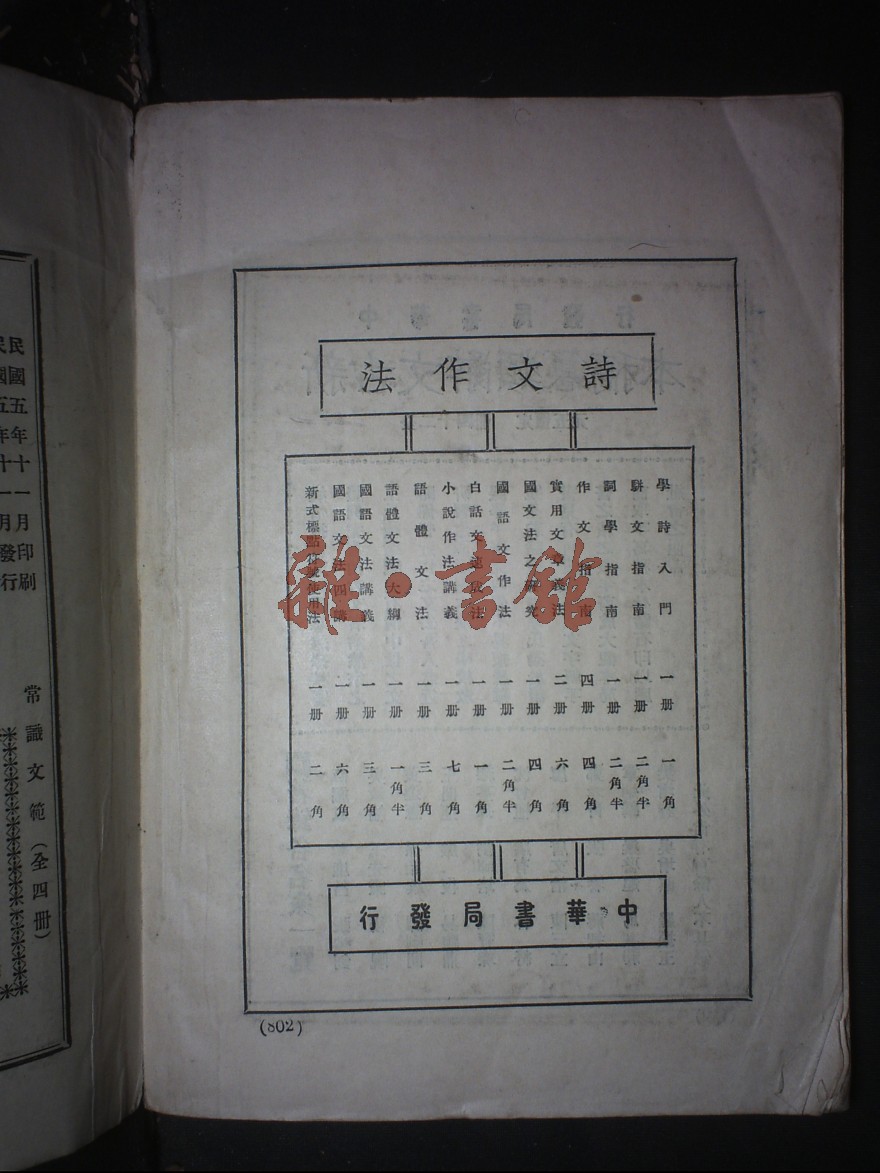 詩文作法
學詩入門 一册 一角
駢文指南 一册 二角半
詞學指南 一册 二角半
作文指南 四册 四角
實用文章義法 二册 六角
國文法之研究 一册 四角
國語文作法 一册 二角半
白話文速成法 一册 一角
小說作法講義 一册 七角
語體文法 一册 三角
語體文法大綱 一册 一角半
國語文法講義 一册 三角
國語文法四講 一册 六角
新式標點符號使用法 一册 二角
中華書局發行
(802)
雜·書館
民國五年十一月印刷
民國五年十一月發行
常識文範（全四冊）